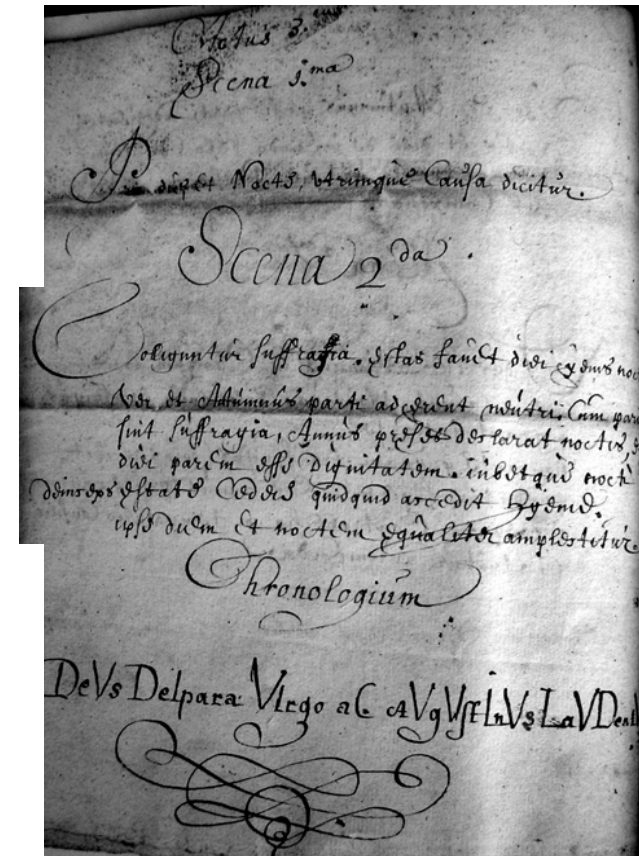 Actus 3.
Scena 1.ma
Pro die et Nocte, utrimque Causa dicitur.
Scena 2da.
Coliguntur suffragia. estas fauet diei hyems noc
Ver et Autumnus parti adhęrent neutri: Cum par
sint suffragia, Annus preses declarat noctis, e
diei parem esse Dignitatem. iubetque nocti
deinceps estate Cedere quidquid accedit hyeme.
ipse diem et noctem equaliter amplectitur.
Chronologium
DeVs DeIpara VIrgo aC AVgVstInVs LaVDen